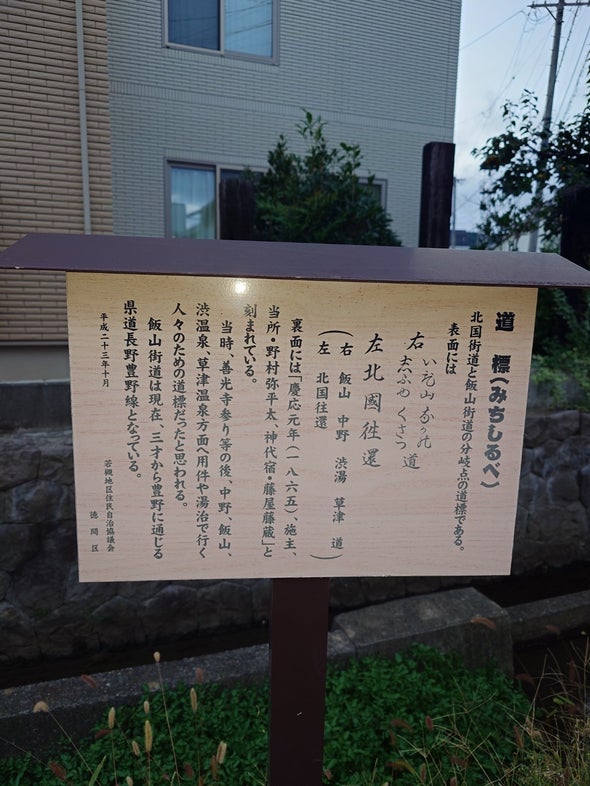 道標(みちしるべ)
北国街道と飯山街道の分岐点の道標である。
表面には
右 いひ山 なかの
志ぶゆ くさつ 道
左 北國徃還
(右 飯山 中野 渋湯 草津 道
左 北国往還)
裏面には「慶応元年(一八六五)、施主、
当所・野村弥平太、神代宿・藤屋藤蔵」と
刻まれている。
当時、善光寺参り等の後、中野、飯山、
渋温泉、草津温泉方面へ用件や湯治で行く
人々のための道標だったと思われる。
飯山街道は現在、三才から豊野に通じる
県道長野豊野線となっている。
平成二十三年十月
若槻地区住民自治協議会
徳間区